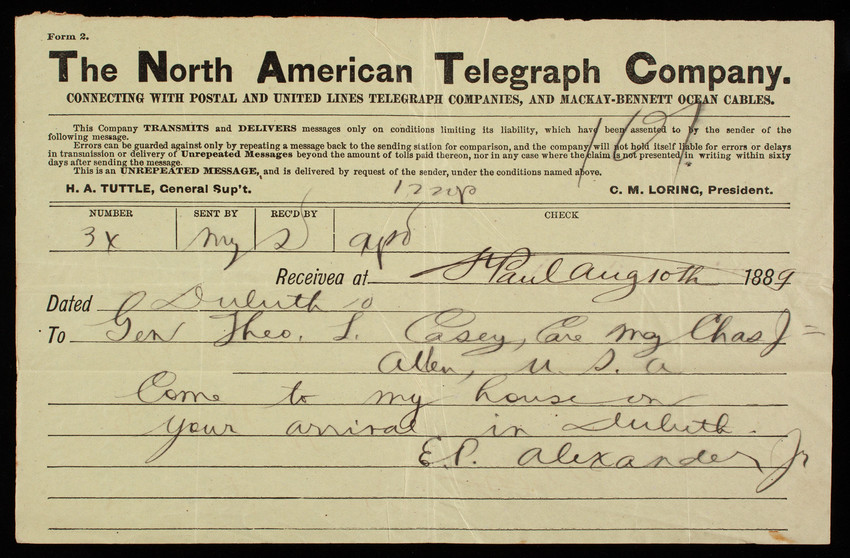 Form 2.
The North American Telegraph Company.
CONNECTING WITH POSTAL AND UNITED LINES TELEGRAPH COMPANIES, AND MACKAY-BENNETT OCEAN CABLES.
This Company TRANSMITS and DELIVERS messages only on conditions limiting its liability, which have been assented to by the sender of the
following message.
Errors can be guarded against only by repeating a message back to the sending station for comparison, and the company will not hold itself liable for errors or delays
in transmission or delivery of Unrepeated Messages beyond the amount of tolls paid thereon, nor in any case where the claim is not presented in writing within sixty
days after sending the message.
This is an UNREPEATED MESSAGE, and is delivered by request of the sender, under the conditions named above.
H. A. TUTTLE, General Sup't. C. M. LORING, President.
NUMBER SENT BY REC'D BY CHECK
3x my
Received at St Paul Aug 10th 1889
Dated Duluth
To Gen Theo. L. Casey, Care Maj Chas J =
Allen, U. S. A
Come to my house on
your arrival in Duluth.
E. P. Alexander Jr